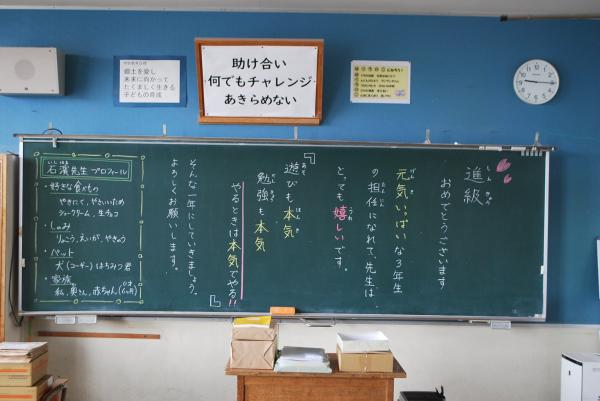 郷土を愛し
未来に向かって
たくましく生きる
子どもの育成
助け合い
何でもチャレンジ
あきらめない
進級
おめでとうございます
元気いっぱいな3年生
の担任になれて、先生は
とっても嬉しいです。
『
遊びも本気
勉強も本気
やるときは本気でやる!!
』
そんな一年にしていきましょう。
よろしくお願いします。
石濱先生プロフィール
・好きな食べもの
やきにく、やさいいため
シュークリーム、生チョコ
・しゅみ
りょこう、えいが、やきゅう
・ペット
犬(コーギー)はちみつ君
・家族
私、奥さん、赤ちゃん(6ヵ月)